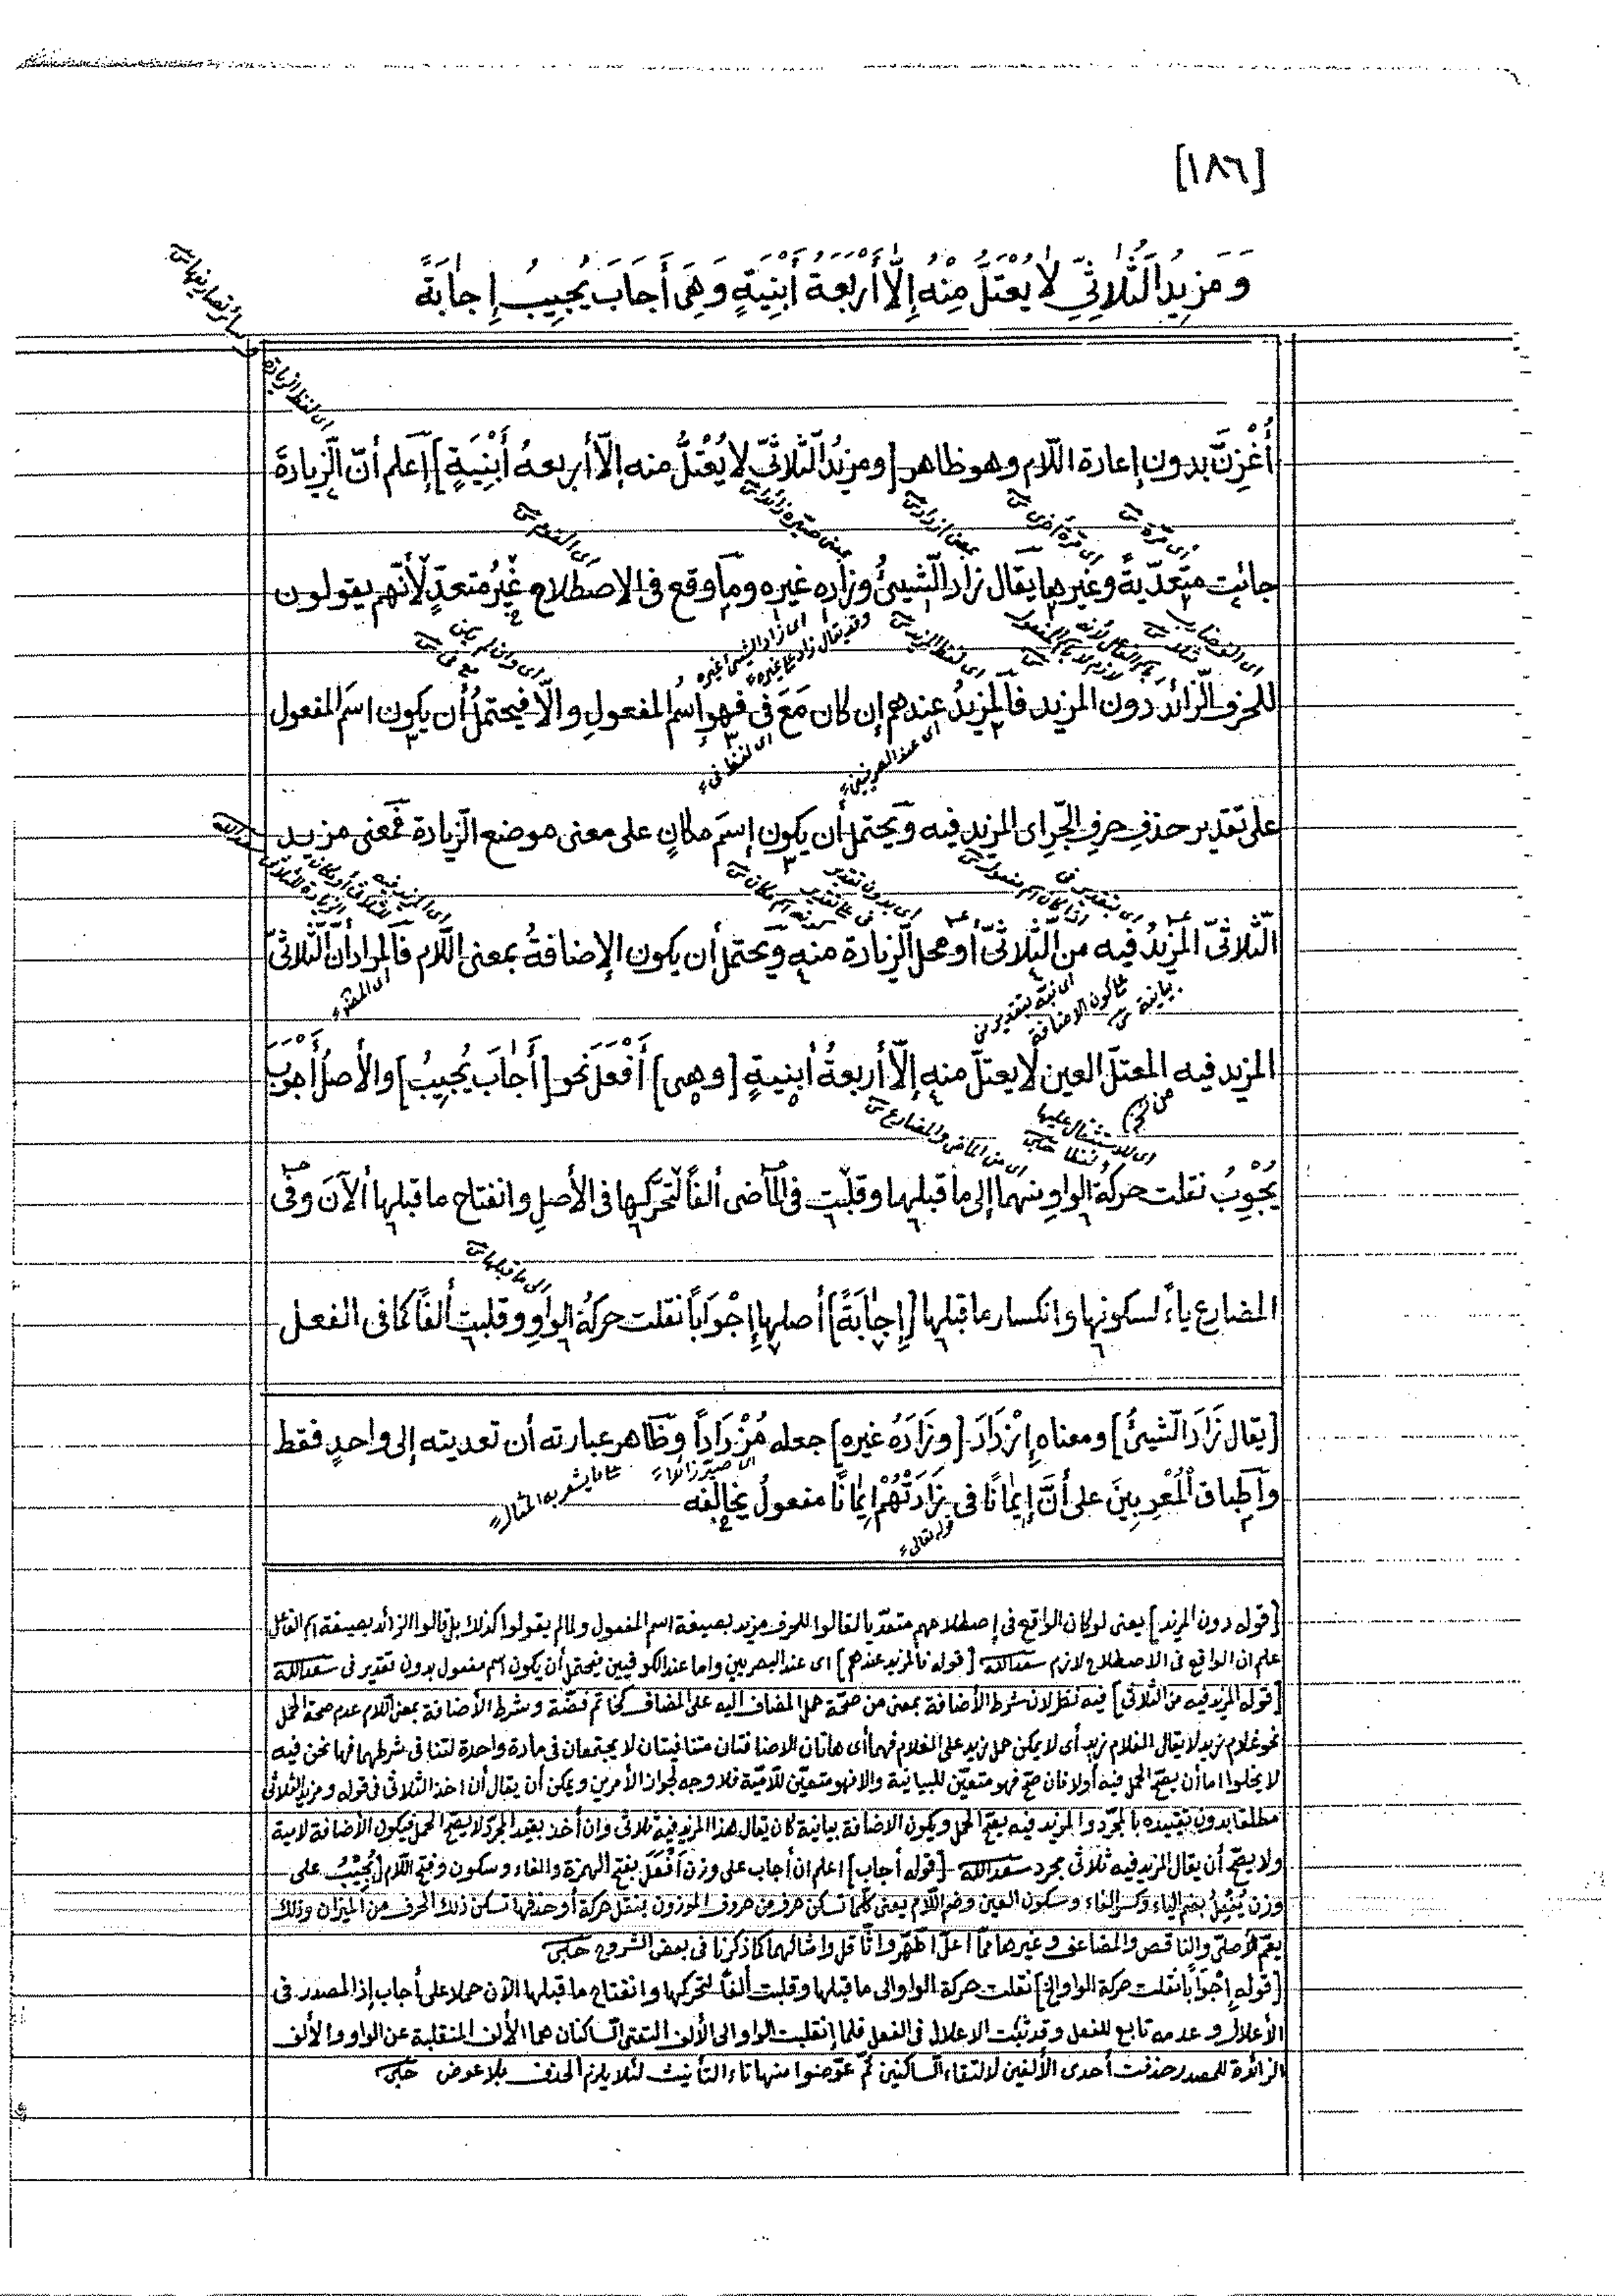 [١٨٦]
وَمَزِيدُ الثَّلَاثِيِّ لَا يُعْتَلُّ مِنْهُ إِلَّا أَرْبَعَةُ أَبْنِيَةٍ وَهِيَ أَجَابَ يُجِيبُ إِجَابَةً
أُغْزِنَّ بدون إعادة اللّام وهو ظاهر [ومزيدُ الثّلاثيّ لا يُعْتَلُّ منه إلّا أربعةُ أَبْنِيَةٍ] إعلم أنّ الزّيادة
جائت متعدّيةً وغيرها يقال زاد الشّيئُ وزاده غيره وما وقع فى الإصطلاح غيرُ متعدٍّ لأنّهم يقولون
للحرف الزّائد دون المزيد فالمزيدُ عندهم إن كان مَعَ فى فهو إسم المفعولِ والّا فيحتملُ أن يكون اسمَ المفعول
على تقدير حذفِ حرفِ الجّرِ اى المزيد فيه ويحتمل أن يكون إسمَ مكانٍ على معنى موضع الزّيادة فمعنى مزيد
الثّلاثىّ المزيدُ فيه من الثّلاثىّ أو محل الزّيادة منه ويحتمل أن يكون الإضافةُ بمعنى اللّام فالمراد أنّ الثّلاثىّ
المزيد فيه المعتلّ العين لا يعتلّ منه إلّا أربعةُ أبنيةٍ [وهى] أَفْعَلَ نحو [أَجَابَ يُجِيبُ] والأصلُ أَجْوَبَ
يُجْوِبُ نقلت حركة الواوِ منهما إلى ما قبلهما وقلبت فى الماضى ألفاً لتحرّكها فى الأصلِ وانفتاح ما قبلها ألآنَ وفى
المضارع ياءً لسكونها وانكسار ما قبلها [إِجَابَةً] أصلها إِجْوَاباً نقلت حركةُ الواوِ وقلبت ألفاً كما فى الفعل
[يقال زَادَ الشّيئُ] ومعناه إِزْدَادَ [وزَادَهُ غيره] جعله مُزْدَاداً وظاهر عبارته أن تعديته إلى واحدٍ فقط
وآطباق الْمُعْرِبِينَ على أنَّ إِيمَانًا فى زَادَتْهُمْ إِيمَانًا مفعولُ يخالفه
[قوله دون المزيد] يعنى لو كان الواقع فى إصطلاحهم متعدّيا لقالوا للحرف مزيد بصيغة اسم المفعول ولمالم يقولوا كذلك بل قالوا الزائد بصيغة اسم الفاعل
علم ان الواقع فى الاصطلاح لازم سعدالله [قوله فالمزيد عندهم] اى عند البصريين واما عند الكوفيين فيحتمل أن يكون اسم مفعول بدون تقدير فى سعدالله
[قوله المزيد فيه من الثلاثى] فيه نظر لان شرط الأضافة بمعنى من صحّة حمل المضاف اليه على المضاف كخاتم فضّة وشرط الأضافة بمعنى اللام عدم صحة الحمل
نحو غلام زيد لا يقال الغلام زيد أى لا يمكن حمل زيد على الغلام فهما أى هاتان الاضافتان متنافيتان لا يجتمعان فى مادة واحدة لتنافى شرطهما فما نحن فيه
لا يخلوا اما أن يصحّ الحمل فيه أولا فان صحّ فهو متعيّن للبيانية والا فهو متعيّن للاميّة فلا وجه لجواز الأمرين ويمكن أن يقال أن اخذ الثلاثى فى قوله ومزيد الثلاثى
مطلقا بدون تقييده بالمجرّد والمزيد فيه يصحّ الحمل ويكون الاضافة بيانية كان يقال هذا المزيد فيه ثلاثى وان أخذ بقيد المجرّد لا يصحّ الحمل فيكون الأضافة لامية
ولا يصحّ أن يقال المزيد فيه ثلاثى مجرد سعدالله [قوله أجاب] اعلم ان أجاب على وزن أَفْعَلَ بفتح الهمزة والفاء وسكون وفتح اللّام [يُجِيْبُ على
وزن يُفِيْلُ بضم الياء وكسر الفاء وسكون العين وضم اللّام يعنى كلّما تسكن حرف من حروف الموزون بنقل حركة أو حذفها تسكن ذلك الحرف من الميزان وذلك
يعمّ الأصلىّ والناقص والمضاعف وغيرها ممّا أعلّ اطّهّر واثّاقل وامثالهما كما ذكرنا فى بعض الشروح حلبى
[قوله إِجْوَاباً نقلت حركة الواو الخ] نقلت حركة الواو الى ما قبلها وقلبت ألفاً لتحركها وانفتاح ما قبلها الآن حملا على أجاب إذ المصدر فى
الأعلال وعدمه تابع للفعل وقد ثبت الاعلال فى الفعل فلما إنقلبت الواو الى الألف التقى السّاكنان هما الألف المنقلبة عن الواو والألف
الزائدة للمصدر حذفت أحدى الألفين لالتقاء السّاكنين ثمّ عوّضوا منها تاء التأنيث لئلا يلزم الحذف بلا عوض حلبى